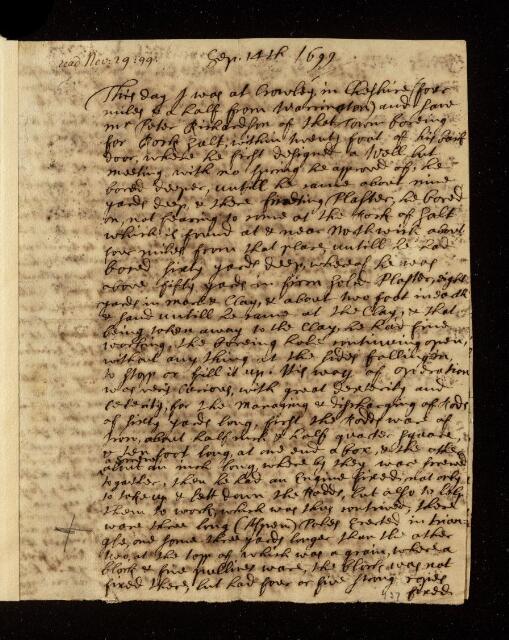 read Nov. 29. 99. Sep. 14th 1699
This day I was at Crowley in Cheshire (four
miles & a half from Warrington) and saw
mr Peter Richardson of that Town boreing
for Rock Salt, within twenty foot of his back
door, where he first designed a Well but
meeting with no spring he approved of, he
bored deeper, untill he came about nine
yards deep, & there finding Plaster, he bored
on, not fearing to come at the Rock of Salt
which is found at & near Northwich about
four miles from that place, untill he had
bored sixty yards deep, whereof he was
above fifty yards in firm solid Plaster, eight
yards in Marle & Clay, & about two foot in earth
& sand untill he came at the Clay, & that
being taken away to the Clay, he had fine
working, the boreing hole continuing open,
without any thing at the sides falling in,
to stop or fill it up: His way of operation
was very Curious, with great dexterity and
celerity, for the Managing & discharging of Rods
of sixty yards long, first the Rods ware of
Iron, about half inch & half quarter square
& ten foot long, at one end a box, & the other
about an inch long, where by they ware screwed
together: then he had an Engine fixed, not only
to take up & lett down the Rodds, but also to help
them to work, which was thus contrived, there
ware three long Poles erected in trian-
gle, one some three yards longer than the other
two, at the top of which was a grain, where a
block & five pullies ware, the block was not
fixed there, but had four or five strong ropes
fixed